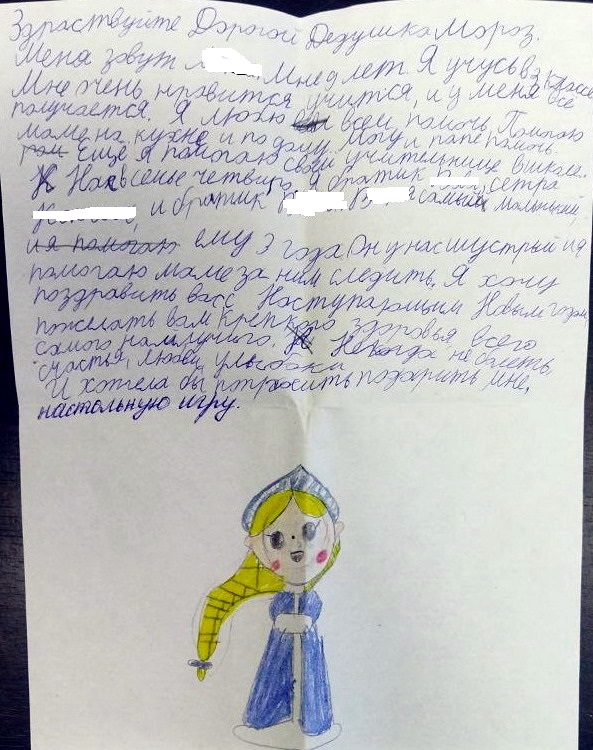 Здраствуйте Дорогой Дедушка Мороз.
Меня зовут Мне 9 лет. Я учусь в 3 классе
Мне очень нравится учится, и у меня все
получается. Я люблю всем помочь. Помогаю
маме на кухне и по дому. Могу и папе помочь.
Еще я помогаю своей учительнице в школе.
Нас в семье четверо, я братик сетра
и братик самый маленький,
и я помогаю ему 3 года Он у нас шустрый и я
помогаю маме за ним следить. Я хочу
поздравить вас с Наступающим Новым годом
пожелать вам крепкого здоровья, всего
самого наилучшего. Некогда не болеть,
счастья, любви, улыбки
И хотела бы попросить подарить мне,
настольную игру.